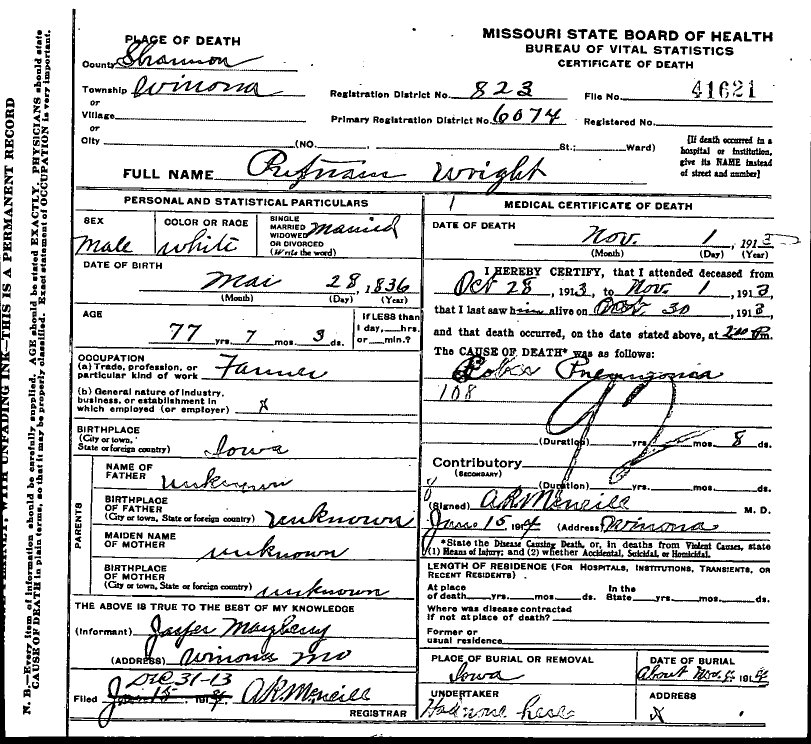 MISSOURI STATE BOARD OF HEALTH
BUREAU OF VITAL STATISTICS
CERTIFICATE OF DEATH
PLACE OF DEATH
County Shannon
Township Winona
or
Village
or
City (NO. St.; Ward)
Registration District No. 823 File No. 41621
Primary Registration District No. 6074 Registered No.
[If death occurred in a
hospital or institution,
give its NAME instead
of street and number]
FULL NAME Putnam Wright
PERSONAL AND STATISTICAL PARTICULARS
SEX
Male
COLOR OR RACE
White
SINGLE
MARRIED
WIDOWED
OR DIVORCED
(Write the word)
Married
DATE OF BIRTH
Mai 28, 1836
(Month) (Day) (Year)
AGE
77 yrs. 7 mos. 3 ds.
If LESS than
1 day,....hrs.
or....min.?
OCCUPATION
(a) Trade, profession, or
particular kind of work Farmer
(b) General nature of industry,
business, or establishment in
which employed (or employer) X
BIRTHPLACE
(City or town,
State or foreign country) Iowa
PARENTS
NAME OF
FATHER unknown
BIRTHPLACE
OF FATHER
(City or town, State or foreign country) unknown
MAIDEN NAME
OF MOTHER unknown
BIRTHPLACE
OF MOTHER
(City or town, State or foreign country) unknown
THE ABOVE IS TRUE TO THE BEST OF MY KNOWLEDGE
(Informant) Jasper Mayberry
(ADDRESS) Winona Mo
Dec 31-13
Filed Jan 15, 1914 A.R. McNeill
REGISTRAR
MEDICAL CERTIFICATE OF DEATH
DATE OF DEATH
Nov. 1, 1913
(Month) (Day) (Year)
I HEREBY CERTIFY, that I attended deceased from
Oct 28, 1913, to Nov. 1, 1913
that I last saw him alive on Oct. 30, 1913
and that death occurred, on the date stated above, at m.
The CAUSE OF DEATH* was as follows:
Lobar Pneumonia
108
(Duration) yrs. mos. 8 ds.
Contributory
(SECONDARY)
(Duration) yrs. mos. ds.
(Signed) A.R. McNeill M. D.
Jan 15, 1914 (Address) Winona
*State the Disease Causing Death, or, in deaths from Violent Causes, state
(1) Means of Injury; and (2) whether Accidental, Suicidal, or Homicidal.
LENGTH OF RESIDENCE (For Hospitals, Institutions, Transients, or
Recent Residents).
At place
of death yrs. mos. ds.
In the
State yrs. mos. ds.
Where was disease contracted
if not at place of death?
Former or
usual residence
PLACE OF BURIAL OR REMOVAL
Iowa
DATE OF BURIAL
About Nov. 1914
UNDERTAKER
ADDRESS
X
N. B.—Every item of information should be carefully supplied. AGE should be stated EXACTLY. PHYSICIANS should state
CAUSE OF DEATH in plain terms, so that it may be properly classified. Exact statement of OCCUPATION is very important.
WITH UNFADING INK—THIS IS A PERMANENT RECORD